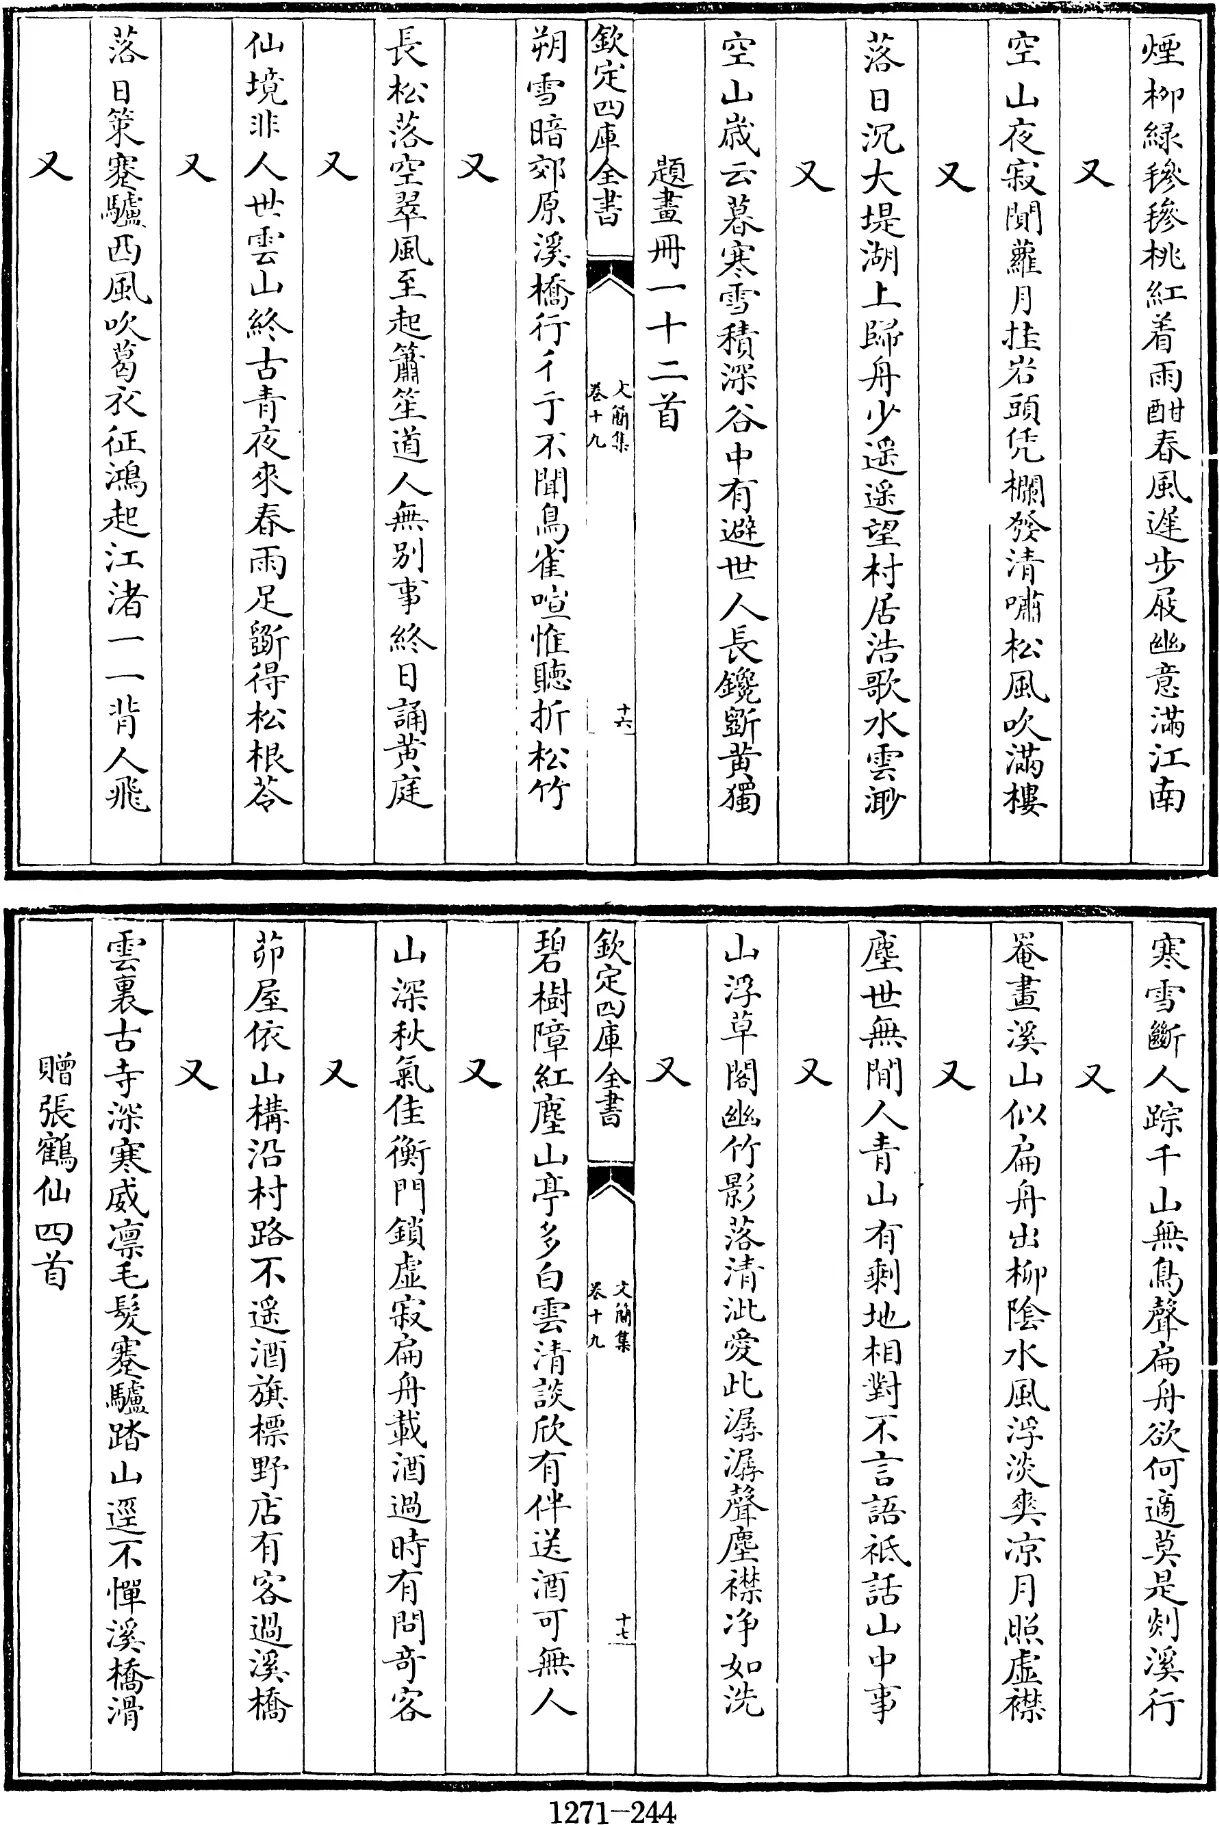 煙栁緑毿毿桃紅着雨酣春風遲步屐幽意滿江南
又
空山夜寂閴蘿月挂岩頭凭欄發清嘯松風吹滿樓
又
落日沉大堤湖上歸舟少遥遥望村居浩歌水雲渺
又
空山歲云暮寒雪積深谷中有避世人長鑱斸黄獨
題畫冊一十二首
欽定四庫全書
文簡集
卷十九
十六
朔雪暗郊原溪橋行彳亍不聞鳥雀喧惟聽折松竹
又
長松落空翠風至起簫笙道人無别事終日誦黄庭
又
仙境非人世雲山終古青夜來春雨足斸得松根苓
又
落日策蹇驢西風吹葛衣征鴻起江渚一一背人飛
又
寒雪斷人踪千山無鳥聲扁舟欲何適莫是剡溪行
又
罨畫溪山似扁舟出柳陰水風浮淡爽凉月照虚襟
又
塵世無閒人青山有剩地相對不言語祗話山中事
又
山浮草閣幽竹影落清泚愛此潺潺聲塵襟净如洗
又
欽定四庫全書
文簡集
卷十九
十七
碧樹障紅塵山亭多白雲清談欣有伴送酒可無人
又
山深秋氣佳衡門鎖虚寂扁舟載酒過時有問竒客
又
茆屋依山構沿村路不遥酒旗標野店有客過溪橋
又
雲裏古寺深寒威凛毛髮蹇驢踏山逕不憚溪橋滑
贈張鶴仙四首
1271-244